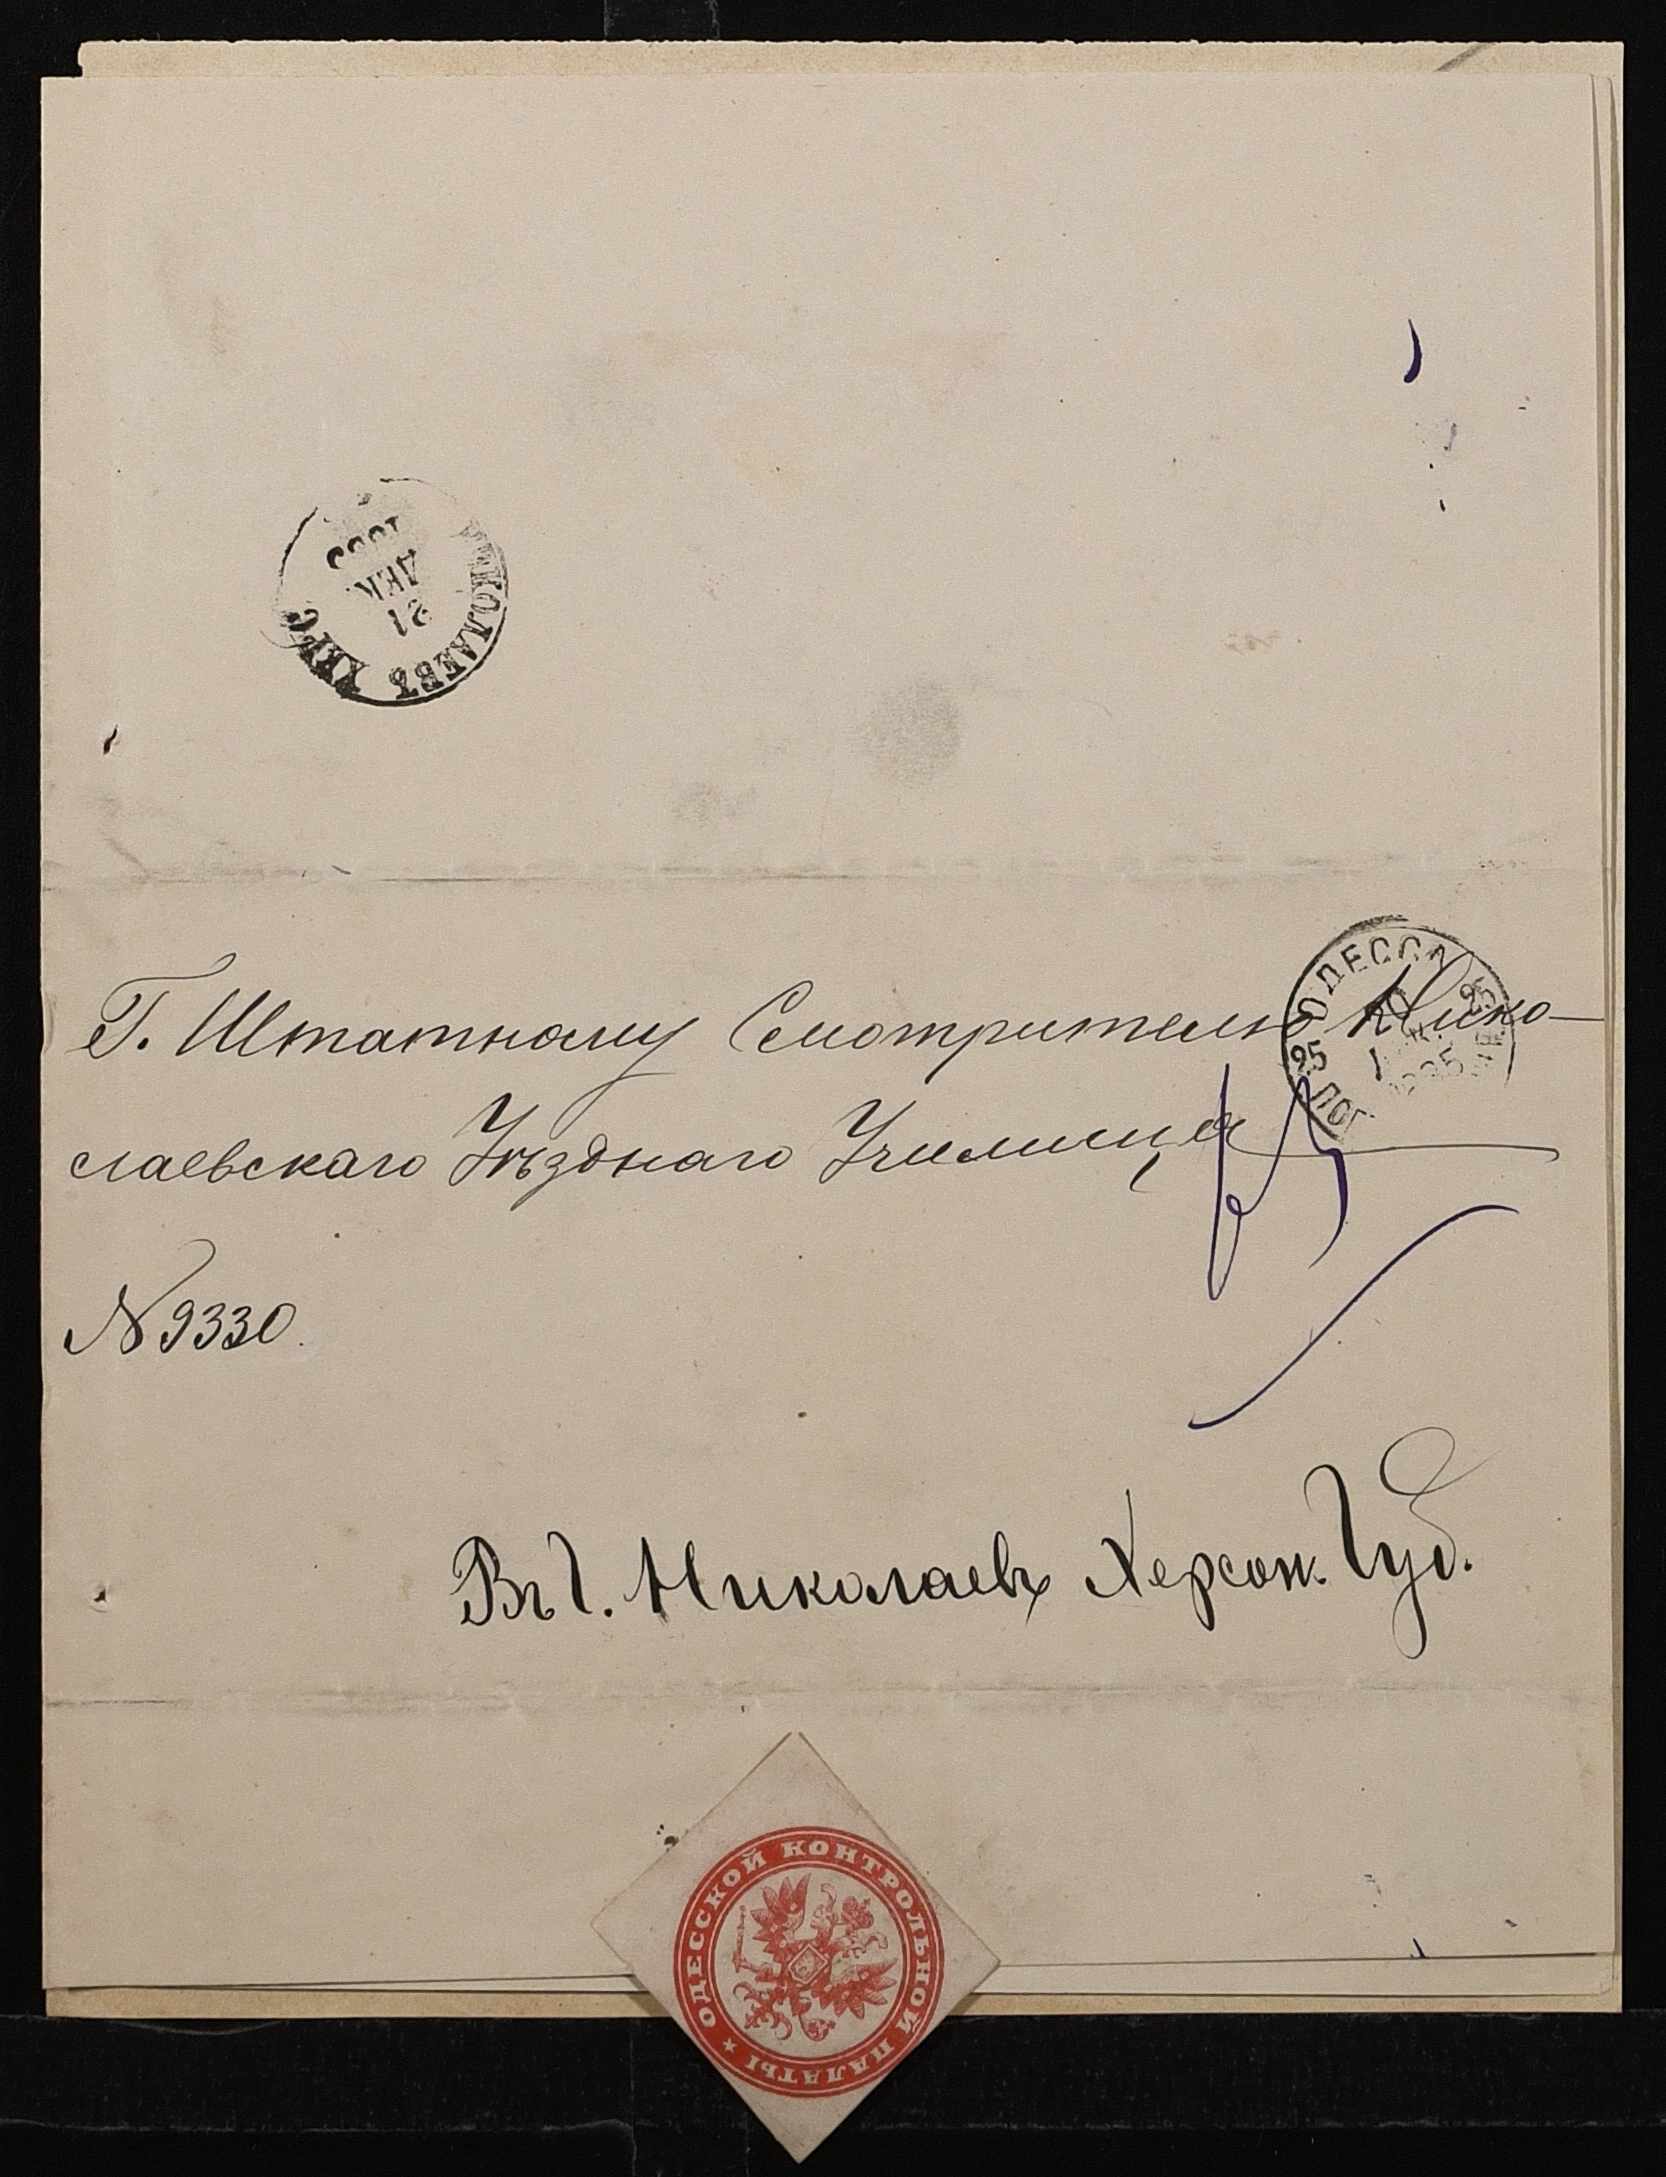 НИКОЛАЕВЪ ХЕРС
21
ДЕК.
ОДЕССА
25 25
Г. Штатному Смотрителю Нико-
лаевскаго Уѣзднаго Училища
N 9330.
Въ Г. Николаевъ Херсон. Губ.
ОДЕССКОЙ КОНТРОЛЬНОЙ ПАЛАТЫ